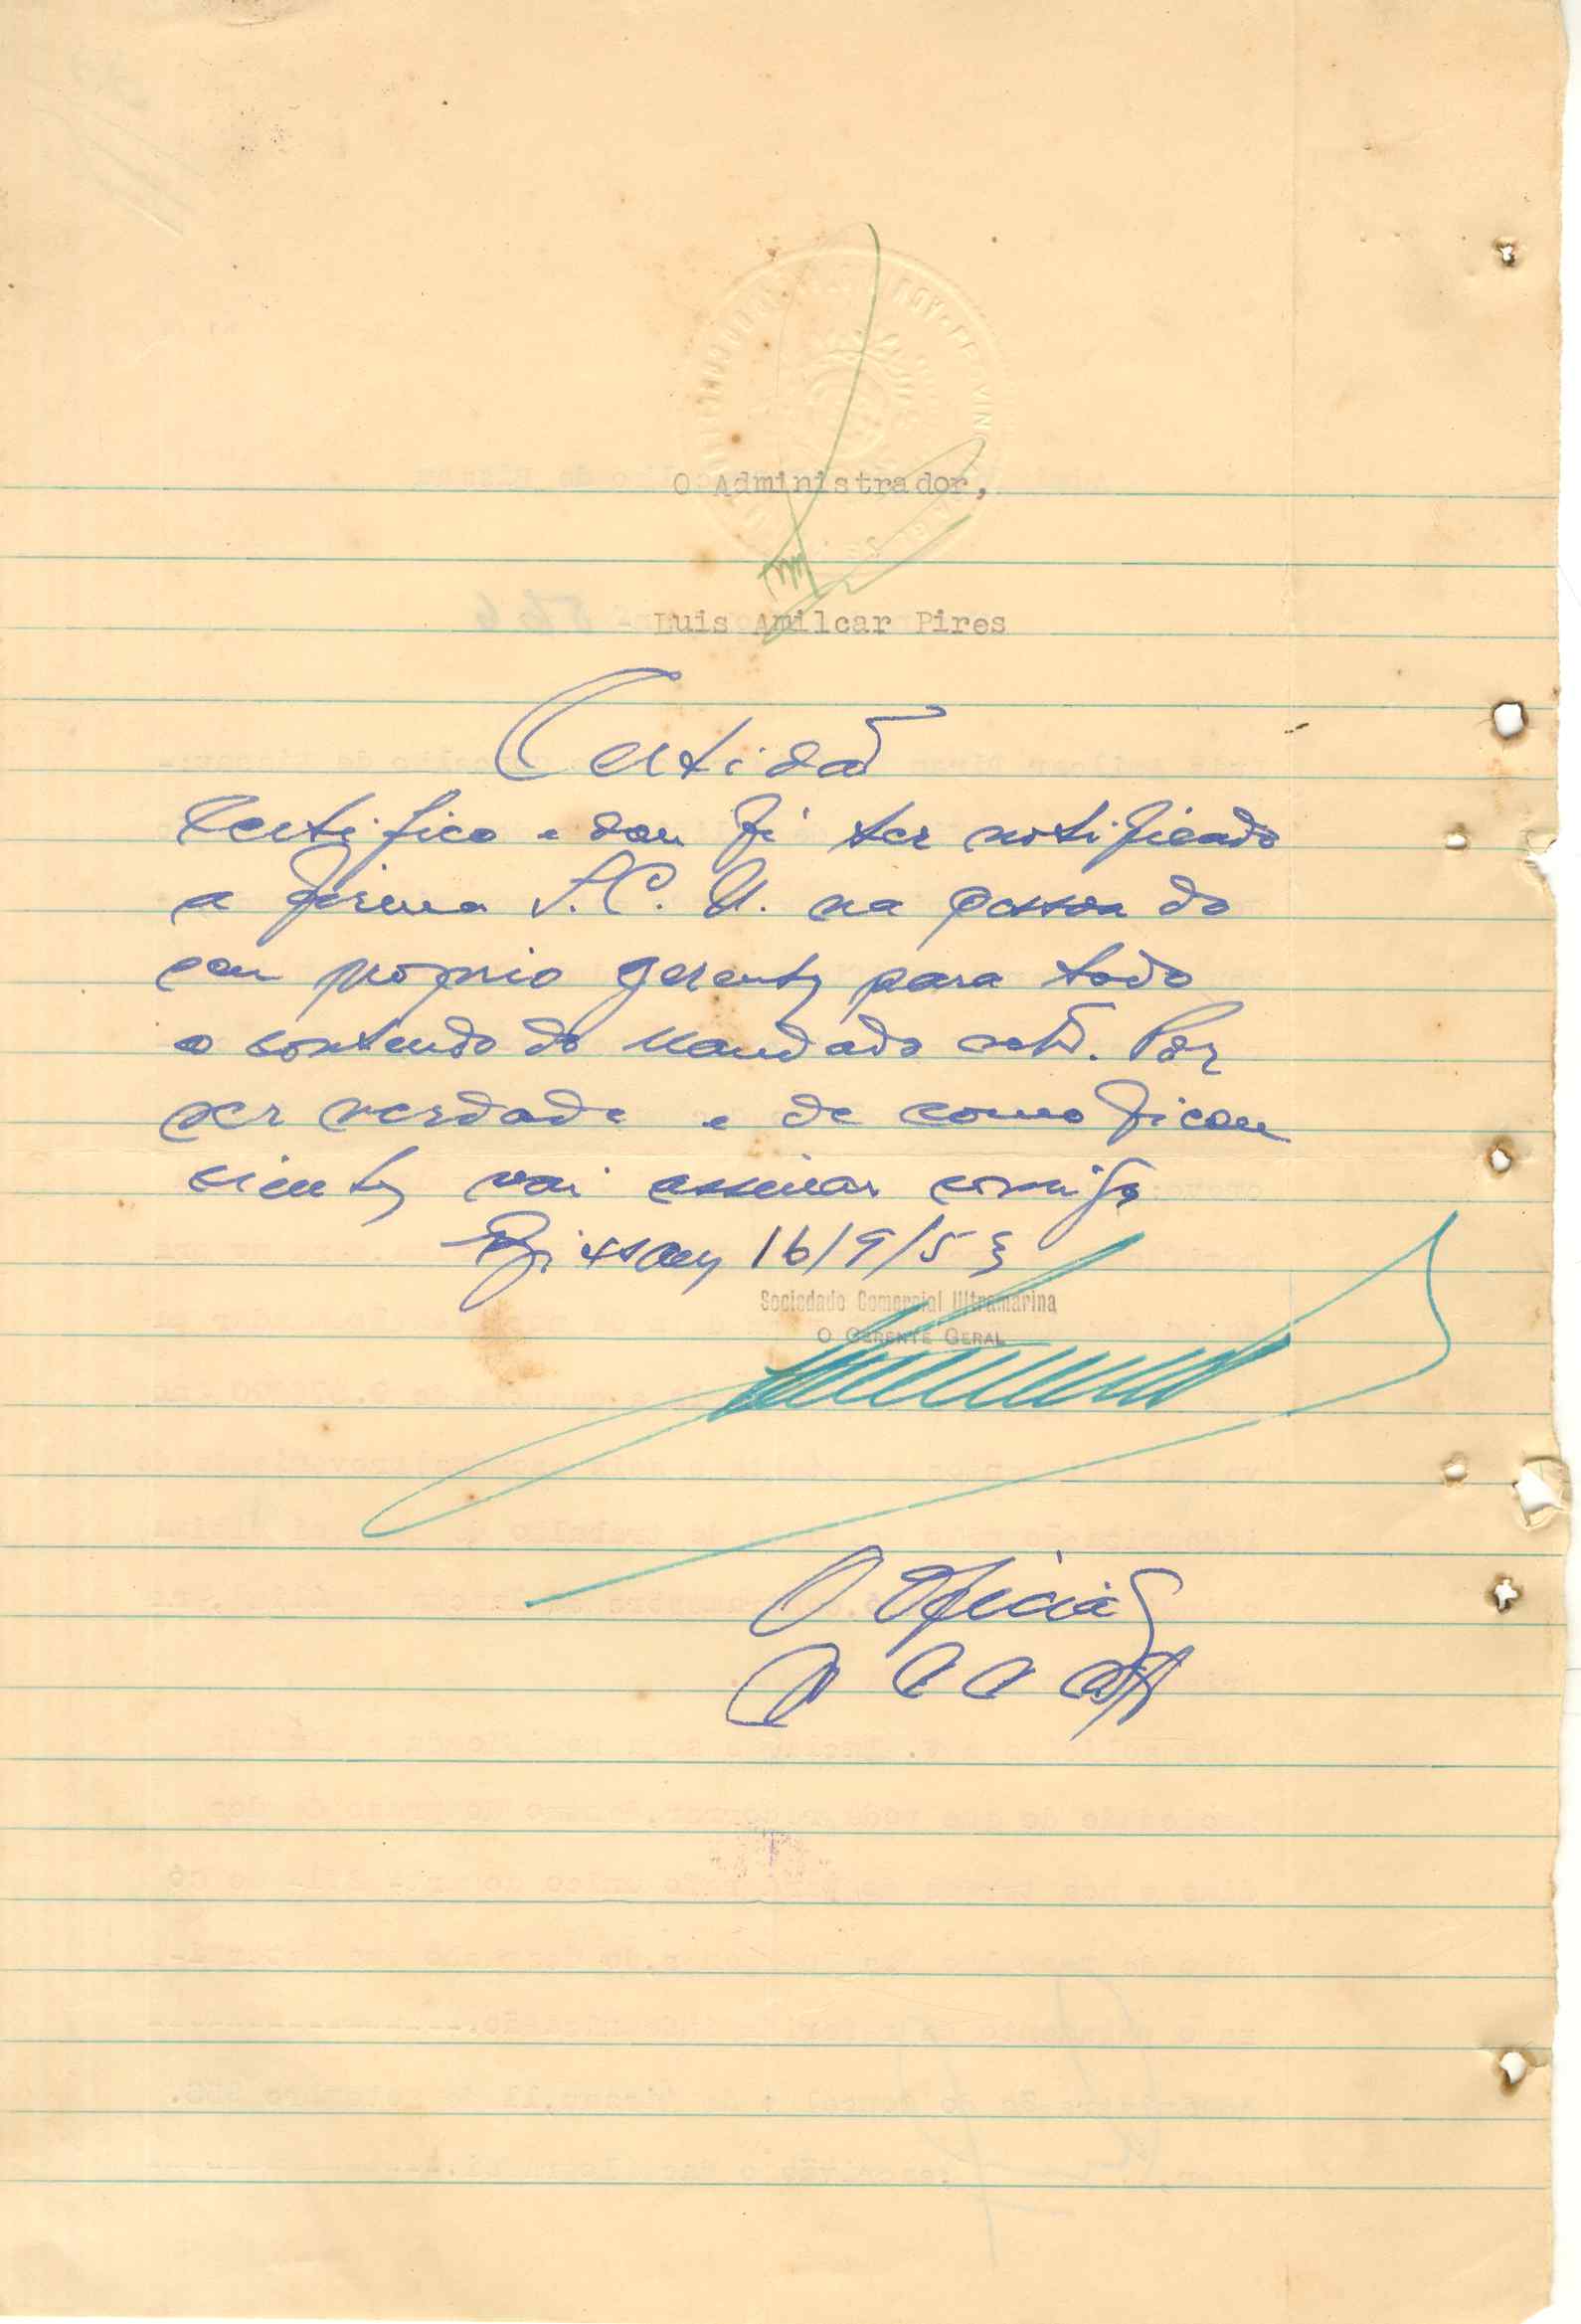 O Administrador,
Luis Amilcar Pires
Certidão
Certifico e dou fé ter notificado
a firma S.C.U. na pessoa do
seu próprio gerente para todo
o conteudo do mandado retro. Por
ser verdade e de como ficou
ciente vai assinar comigo
Bissau 16/9/53
Sociedade Comercial Ultramarina
O GERENTE GERAL
O Oficial